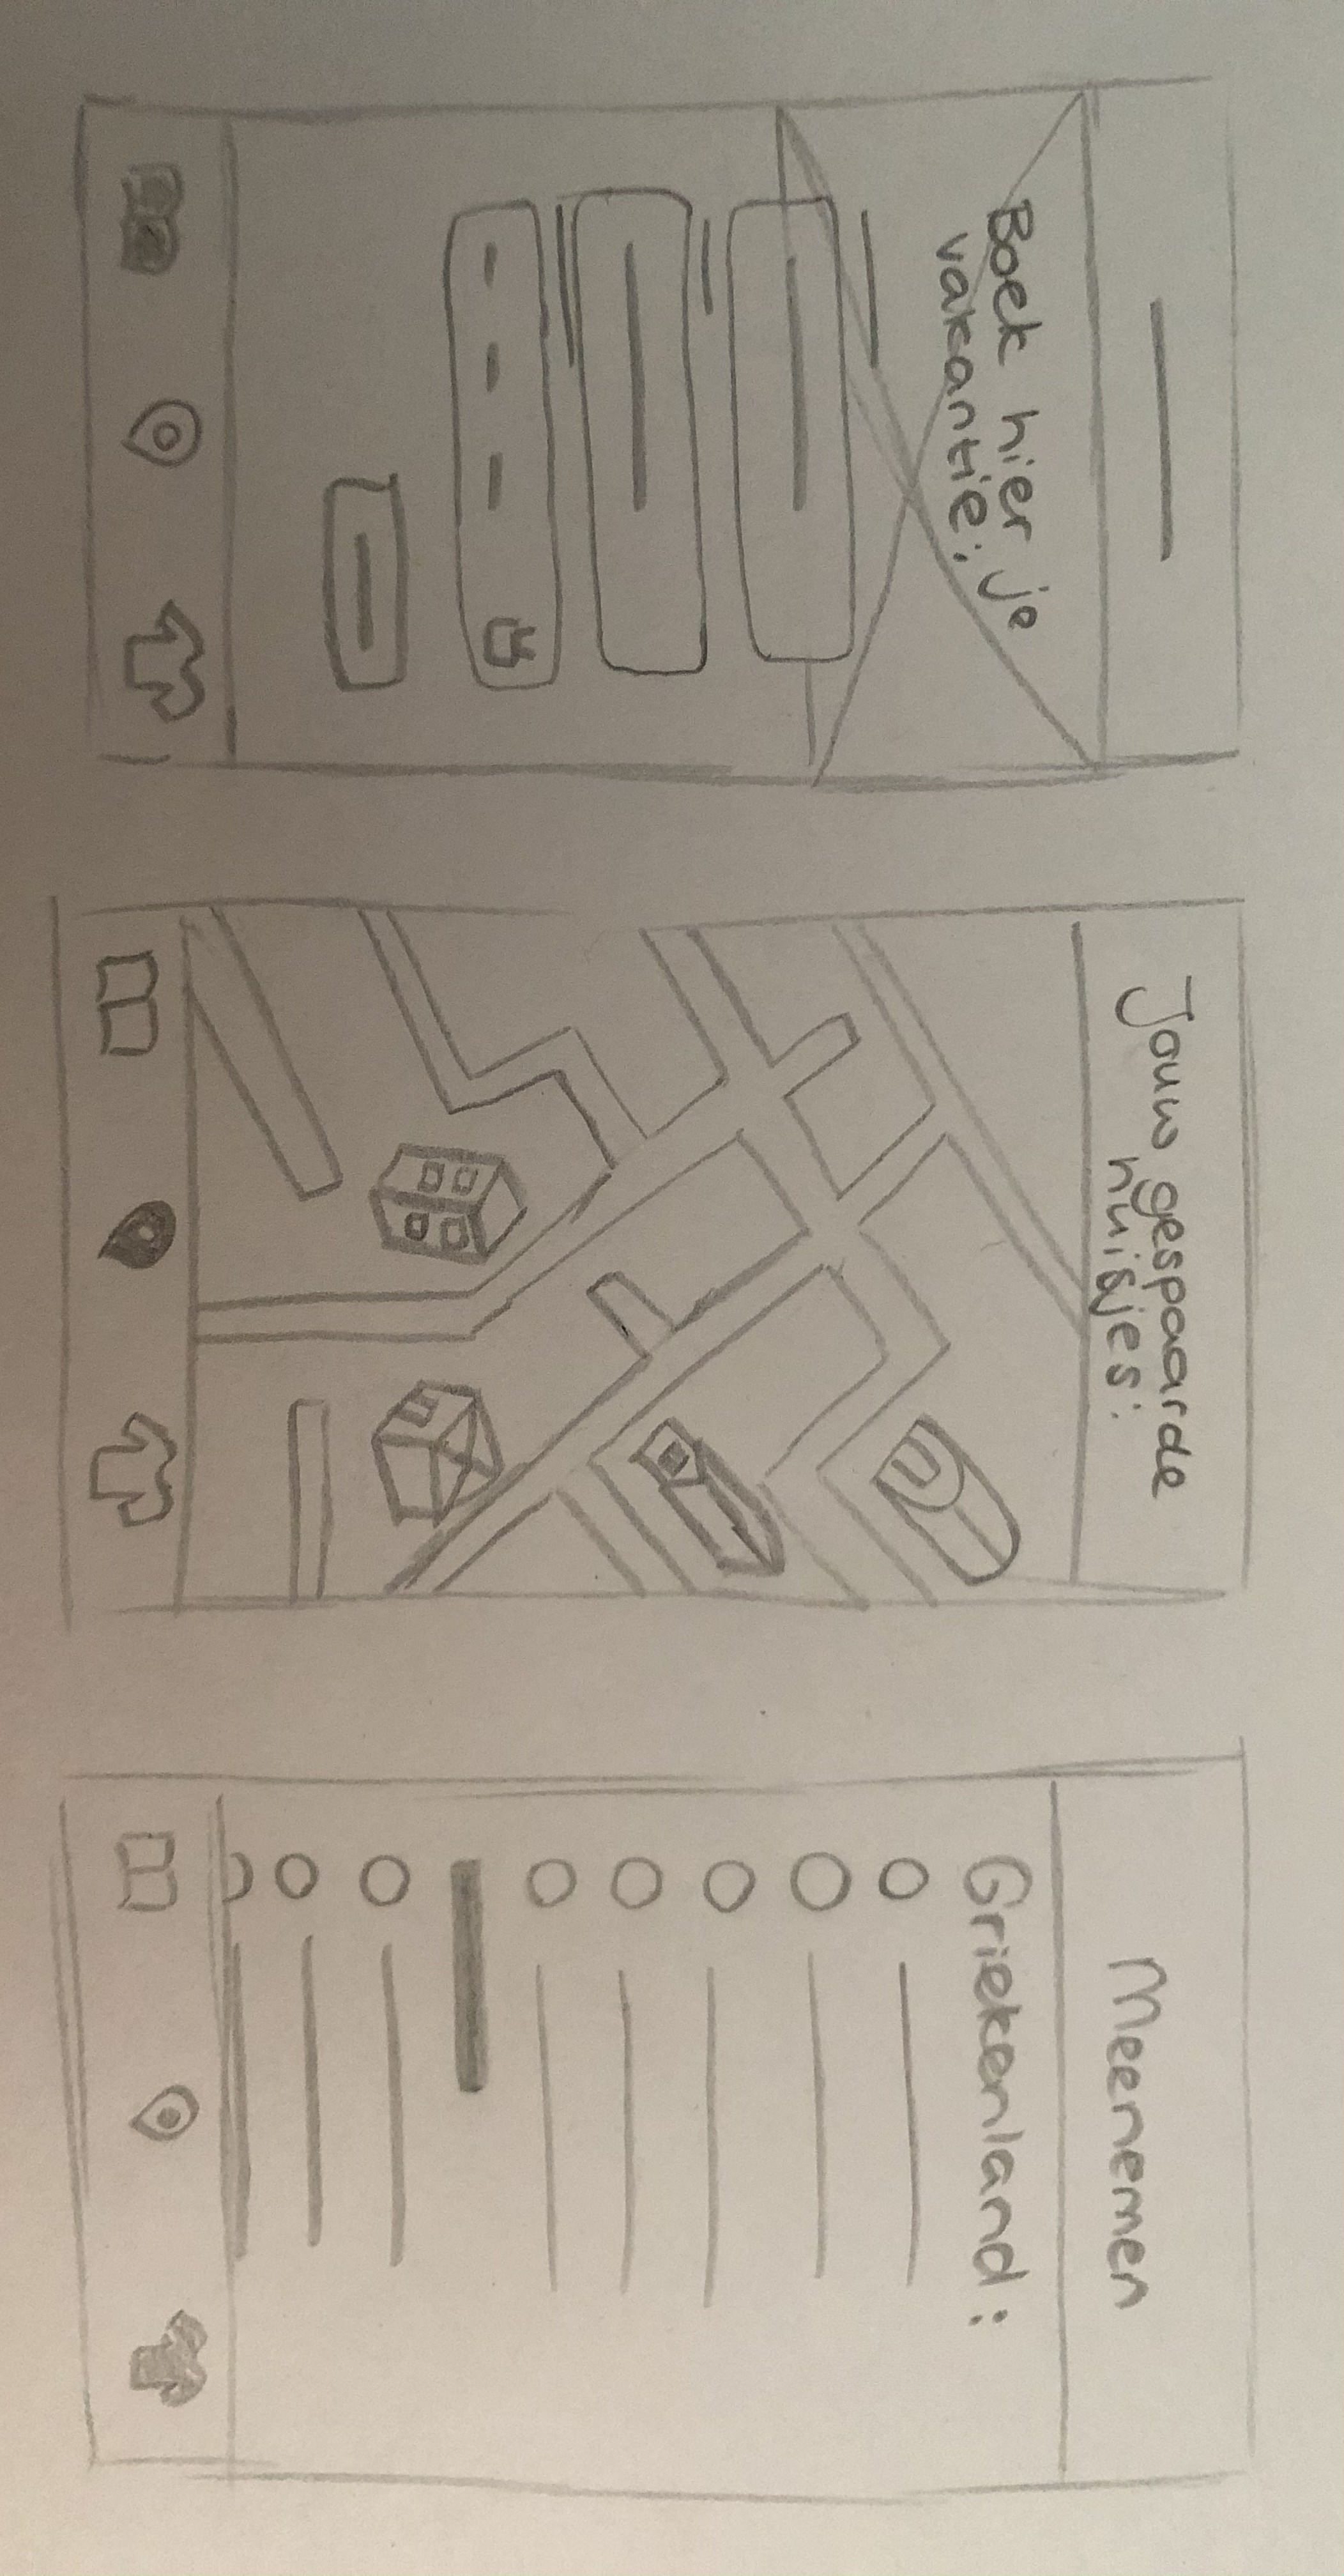 Boek hier je
vakantie:
Jouw gespaarde
huisjes:
Meenemen
Griekenland: